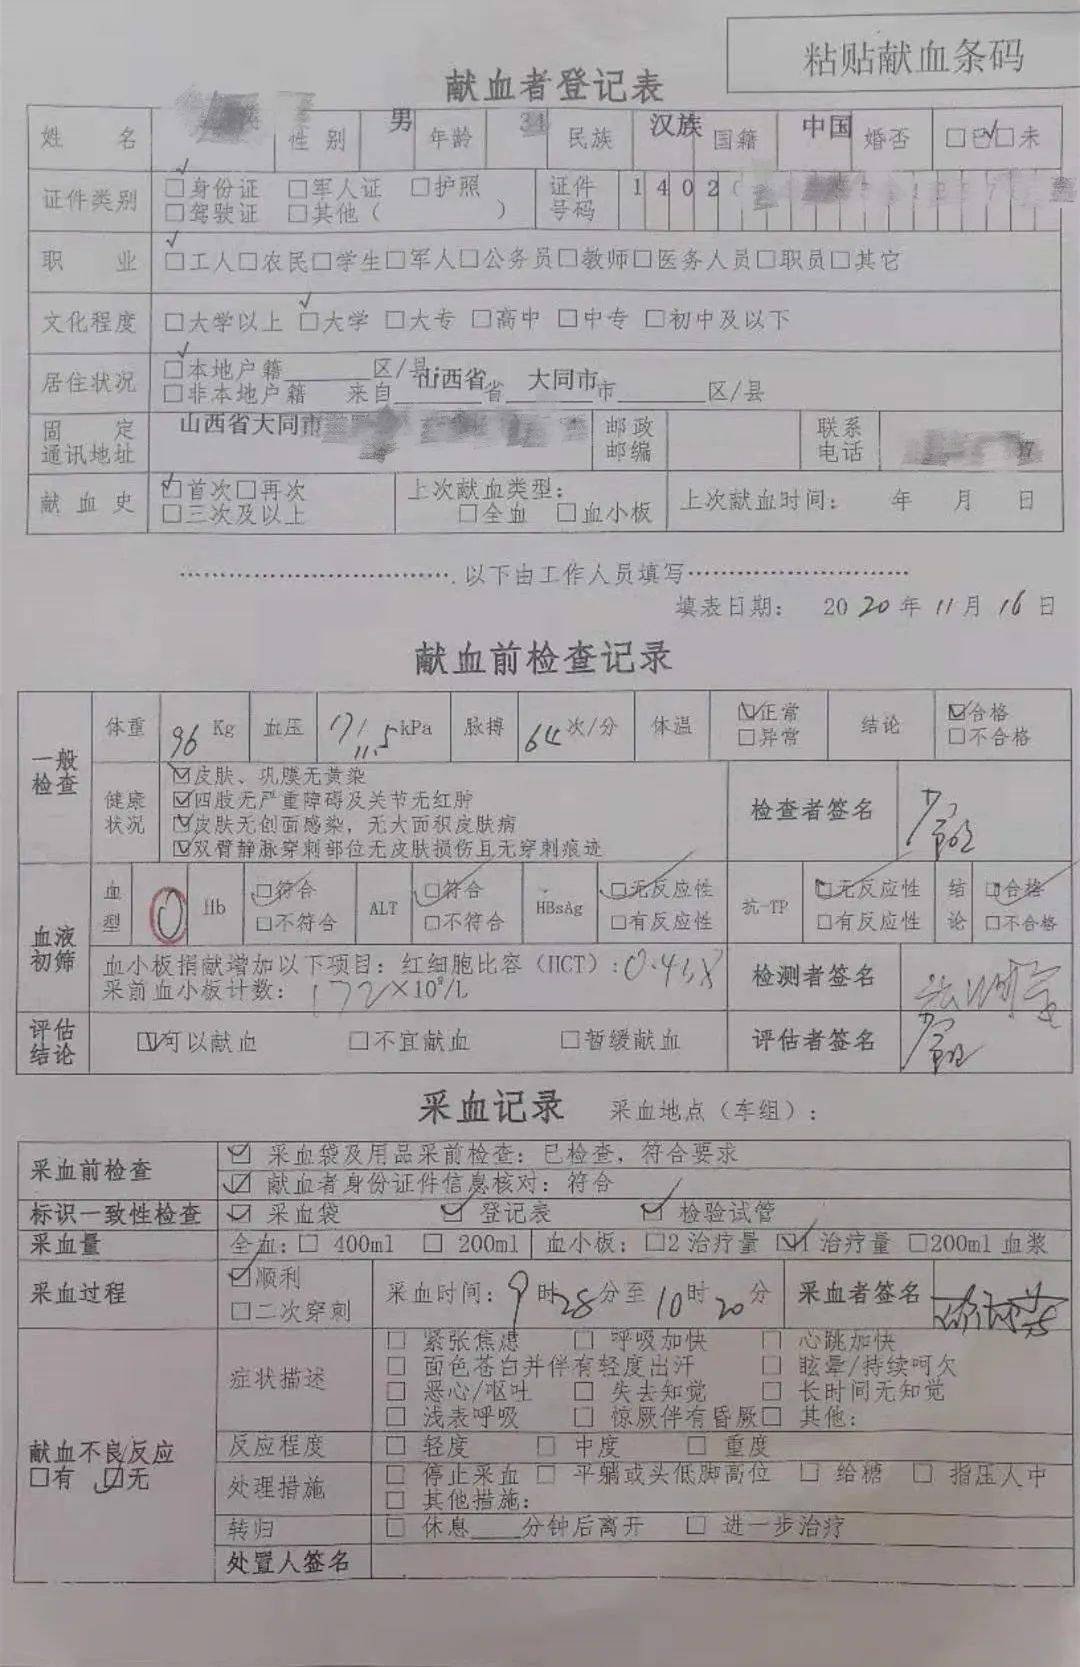 粘贴献血条码
献血者登记表
姓 名 性 别 男 年龄 34 民族 汉族 国籍 中国 婚否 □已☑□未
证件类别 ☑身份证 □军人证 □护照 □驾驶证 □其他（ ） 证件号码 1402
职 业 ☑工人□农民□学生□军人□公务员□教师□医务人员□职员□其它
文化程度 □大学以上 ☑大学 □大专 □高中 □中专 □初中及以下
居住状况 ☑本地户籍______区/县
□非本地户籍 来自 山西省 省 大同市 市______区/县
固 定 通讯地址 山西省大同市 邮政邮编 联系电话
献 血 史 ☑首次□再次 □三次及以上 上次献血类型： □全血 □血小板 上次献血时间： 年 月 日
以下由工作人员填写
填表日期： 2020年11月16日
献血前检查记录
一般检查 体重 96 Kg 血压 17/11.5 kPa 脉搏 64次/分 体温 ☑正常 □异常 结论 ☑合格 □不合格
健康状况 ☑皮肤、巩膜无黄染
☑四肢无严重障碍及关节无红肿
☑皮肤无创面感染，无大面积皮肤病
☑双臂静脉穿刺部位无皮肤损伤且无穿刺痕迹
检查者签名
血液初筛 血型 O Hb ☑符合 □不符合 ALT ☑符合 □不符合 HBsAg ☑无反应性 □有反应性 抗-TP ☑无反应性 □有反应性 结论 ☑合格 □不合格
血小板捐献增加以下项目：红细胞比容（HCT）：
采前血小板计数： 172×10⁹/L
检测者签名
评估结论 ☑可以献血 □不宜献血 □暂缓献血 评估者签名
采血记录 采血地点（车组）：
采血前检查 ☑ 采血袋及用品采前检查：已检查，符合要求
☑ 献血者身份证件信息核对：符合
标识一致性检查 ☑ 采血袋 ☑ 登记表 ☑ 检验试管
采血量 全血：□ 400ml □ 200ml 血小板：□2 治疗量 ☑1 治疗量 □200ml 血浆
采血过程 ☑顺利 □二次穿刺 采血时间：9时28分至10时20分 采血者签名
献血不良反应 □有 ☑无
症状描述 □ 紧张焦虑 □ 呼吸加快 □ 心跳加快
□ 面色苍白并伴有轻度出汗 □ 眩晕/持续呵欠
□ 恶心/呕吐 □ 失去知觉 □ 长时间无知觉
□ 浅表呼吸 □ 惊厥伴有昏厥□ 其他：
反应程度 □ 轻度 □ 中度 □ 重度
处理措施 □ 停止采血 □ 平躺或头低脚高位 □ 给糖 □ 指压人中
□ 其他措施：
转归 □ 休息____分钟后离开 □ 进一步治疗
处置人签名